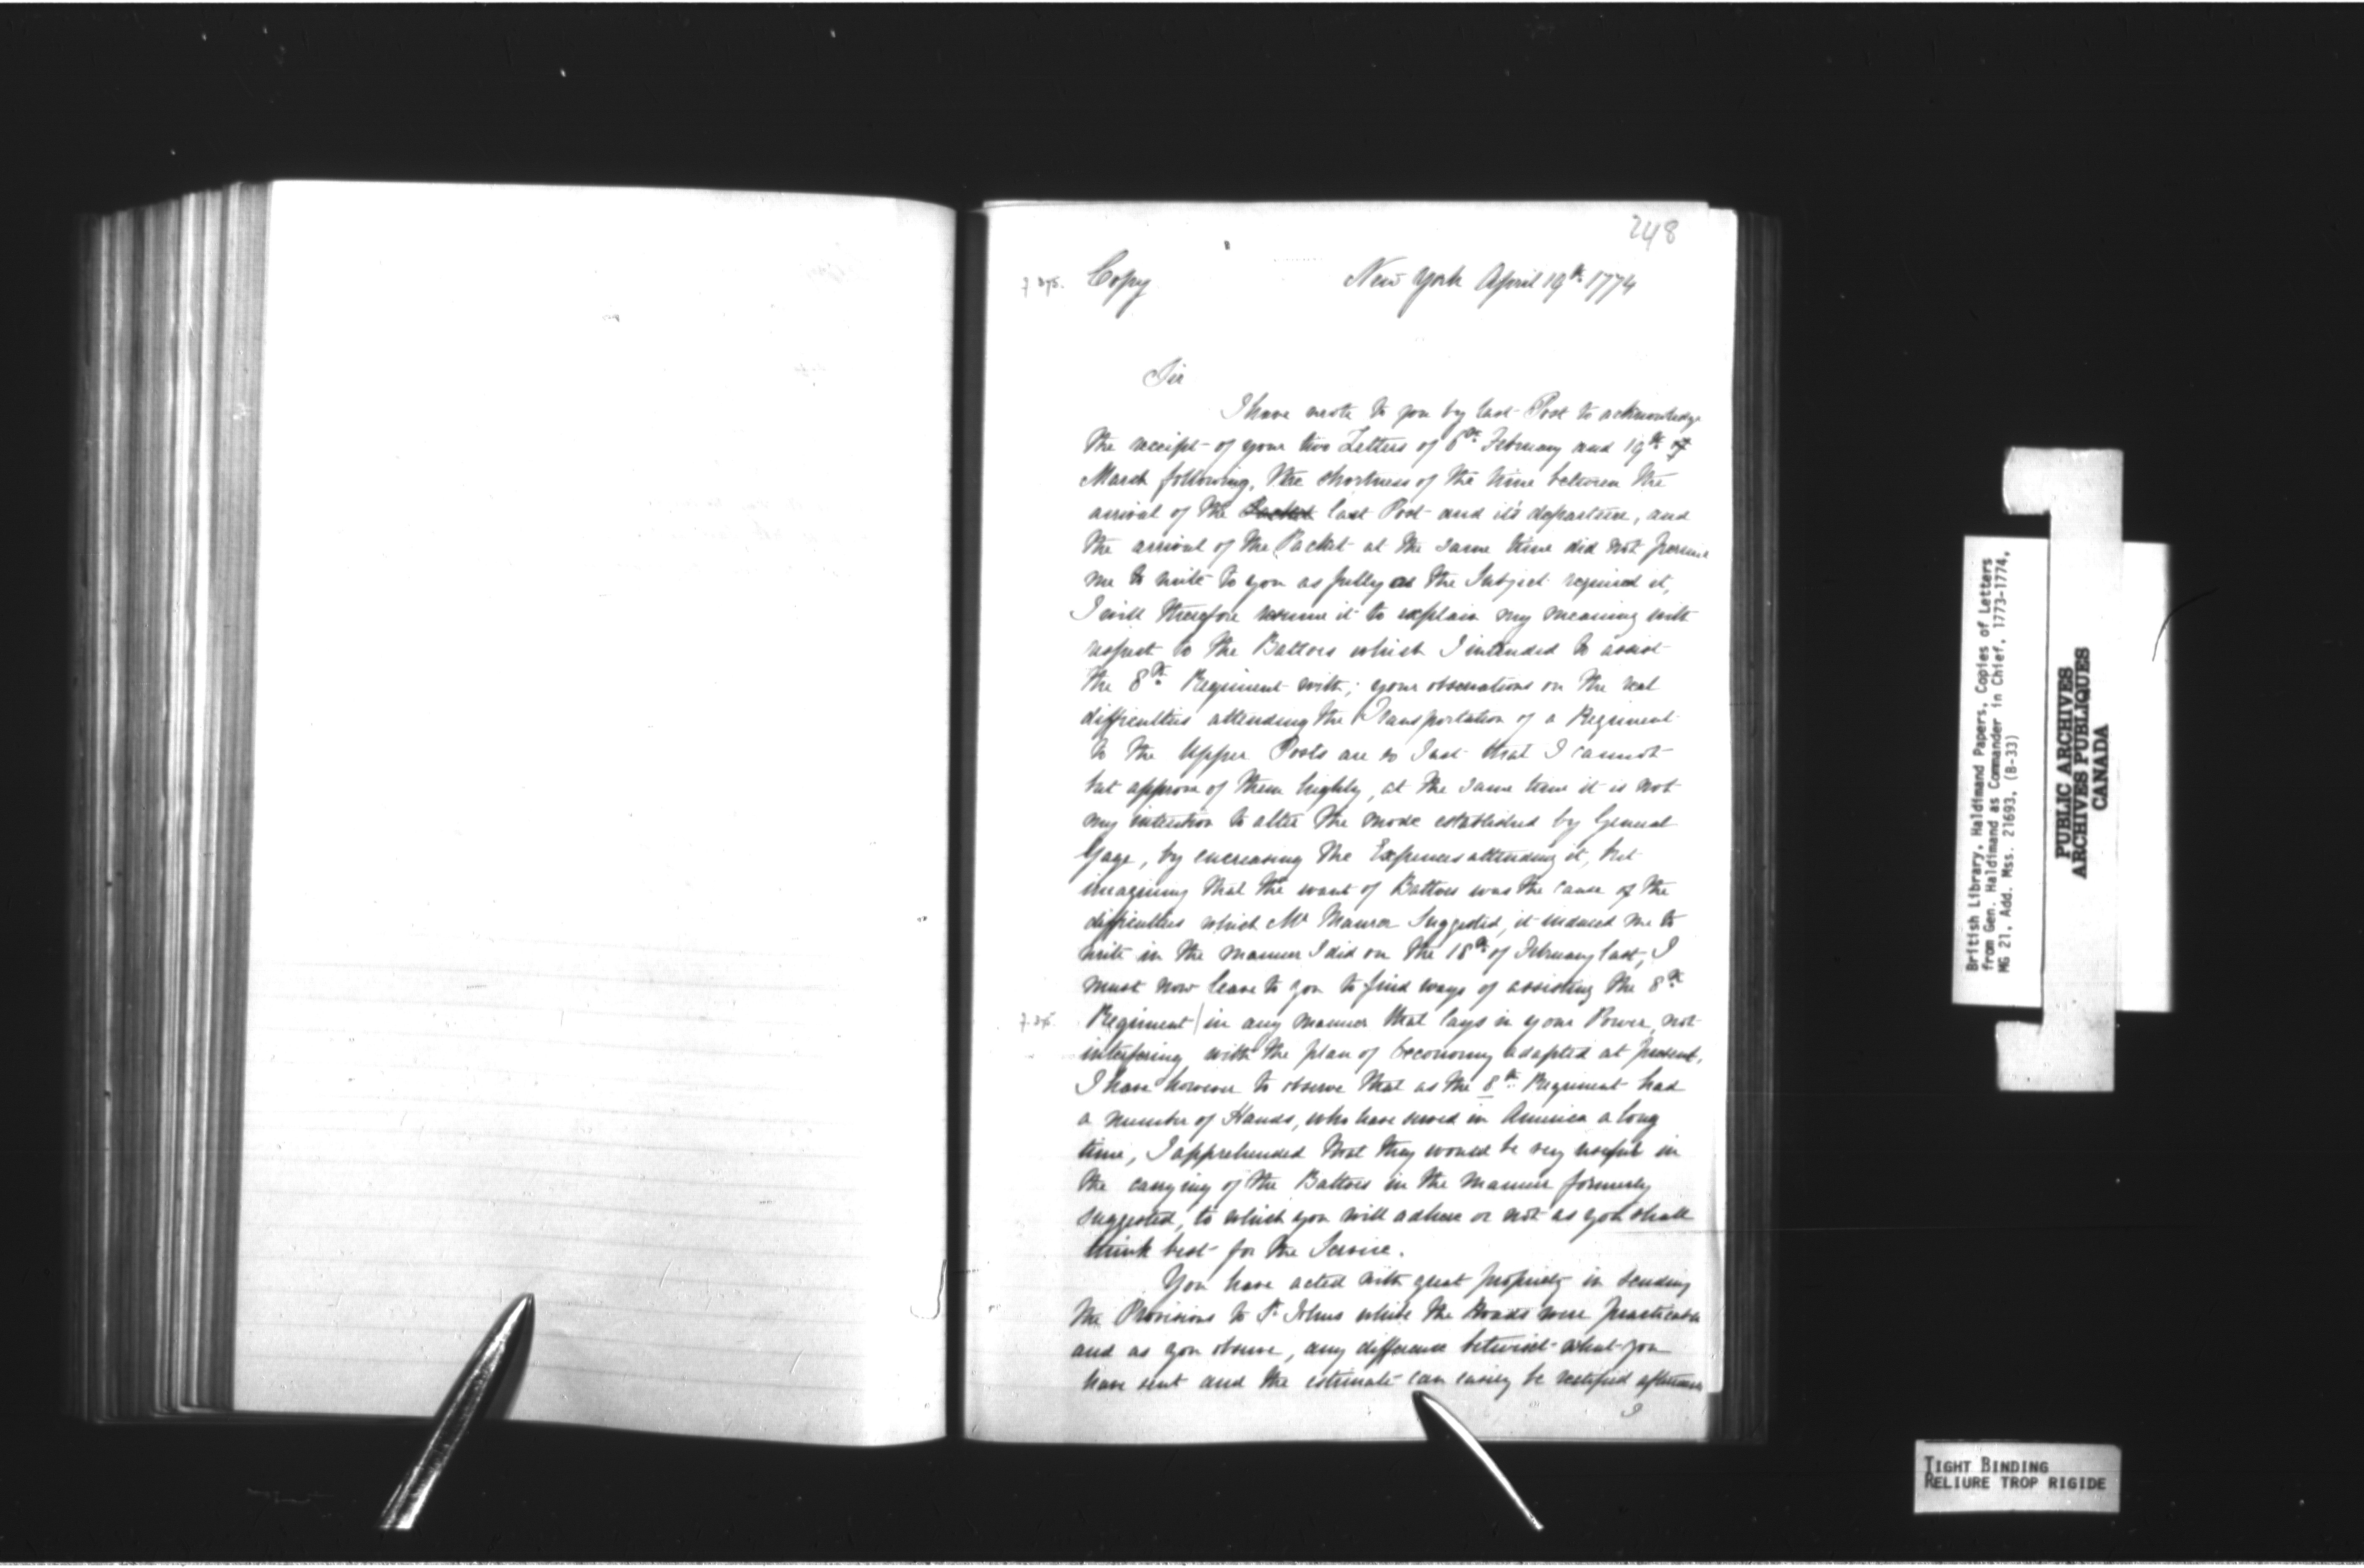 248
Copy New York April 19th 1774
Sir
I have wrote to you by last Post to acknowledge
the receipt of your two Letters of 6th February and 19th of
March following, the shortness of the time between the
arrival of the Packet last Post and it's departure, and
the arrival of the Packet at the same time did not
me to write to you as fully as the Subject required it,
I will therefore resume it to explain my meaning with
respect to the Battoes which I intended to assist
the 8th Regiment with; your observations on the real
difficulties attending the Transportation of a Regiment
to the Upper Posts are so Just that I cannot
but approve of them highly, at the same time it is not
my intention to alter the mode established by General
Gage, by encreasing the Expences attending it, but
imagining that the want of Battoes was the cause of the
difficulties which Mr Suggested, it induced me to
write in the manner I did on the 18th of February last, I
must now leave to you to find ways of assisting the 8th
Regiment / in any manner that lays in your Power, not
interfering with the plan of Oeconomy adapted at present,
I have however to observe that as the 8th Regiment had
a number of Hands, who have served in America a long
time, I apprehended that they would be very useful in
the carrying of the Battoes in the manner formerly
suggested, to which you will adhere or not as you shall
think best for the Service.
You have acted with great propriety in sending
the Provisions to St Johns while the Roads were practicable
and as you observe, any difference betwixt what you
have sent and the estimate can easily be rectified afterwards
I
British Library, Haldimand Papers, Copies of Letters
from Gen. Haldimand as Commander in Chief, 1773-1774,
MG 21, Add. Mss. 21693, (B-33)
PUBLIC ARCHIVES
ARCHIVES PUBLIQUES
CANADA
TIGHT BINDING
RELIURE TROP RIGIDE